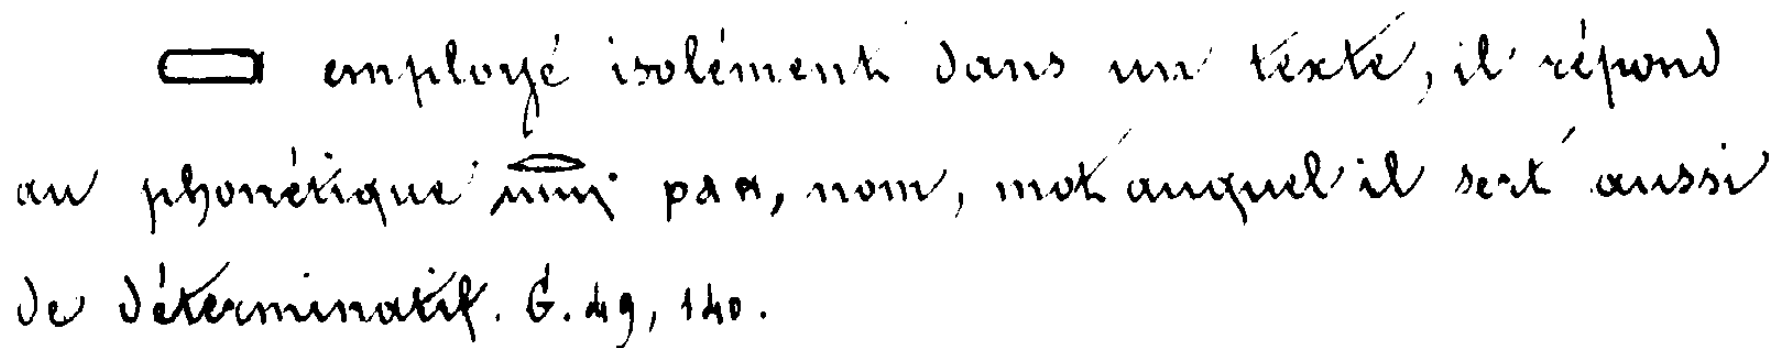 𓍷 employé isolément dans un texte, il répond
au phonétique 𓂋𓈖 ⲣⲁⲛ, nom, mot auquel il sert aussi
de déterminatif. G. 49, 140.